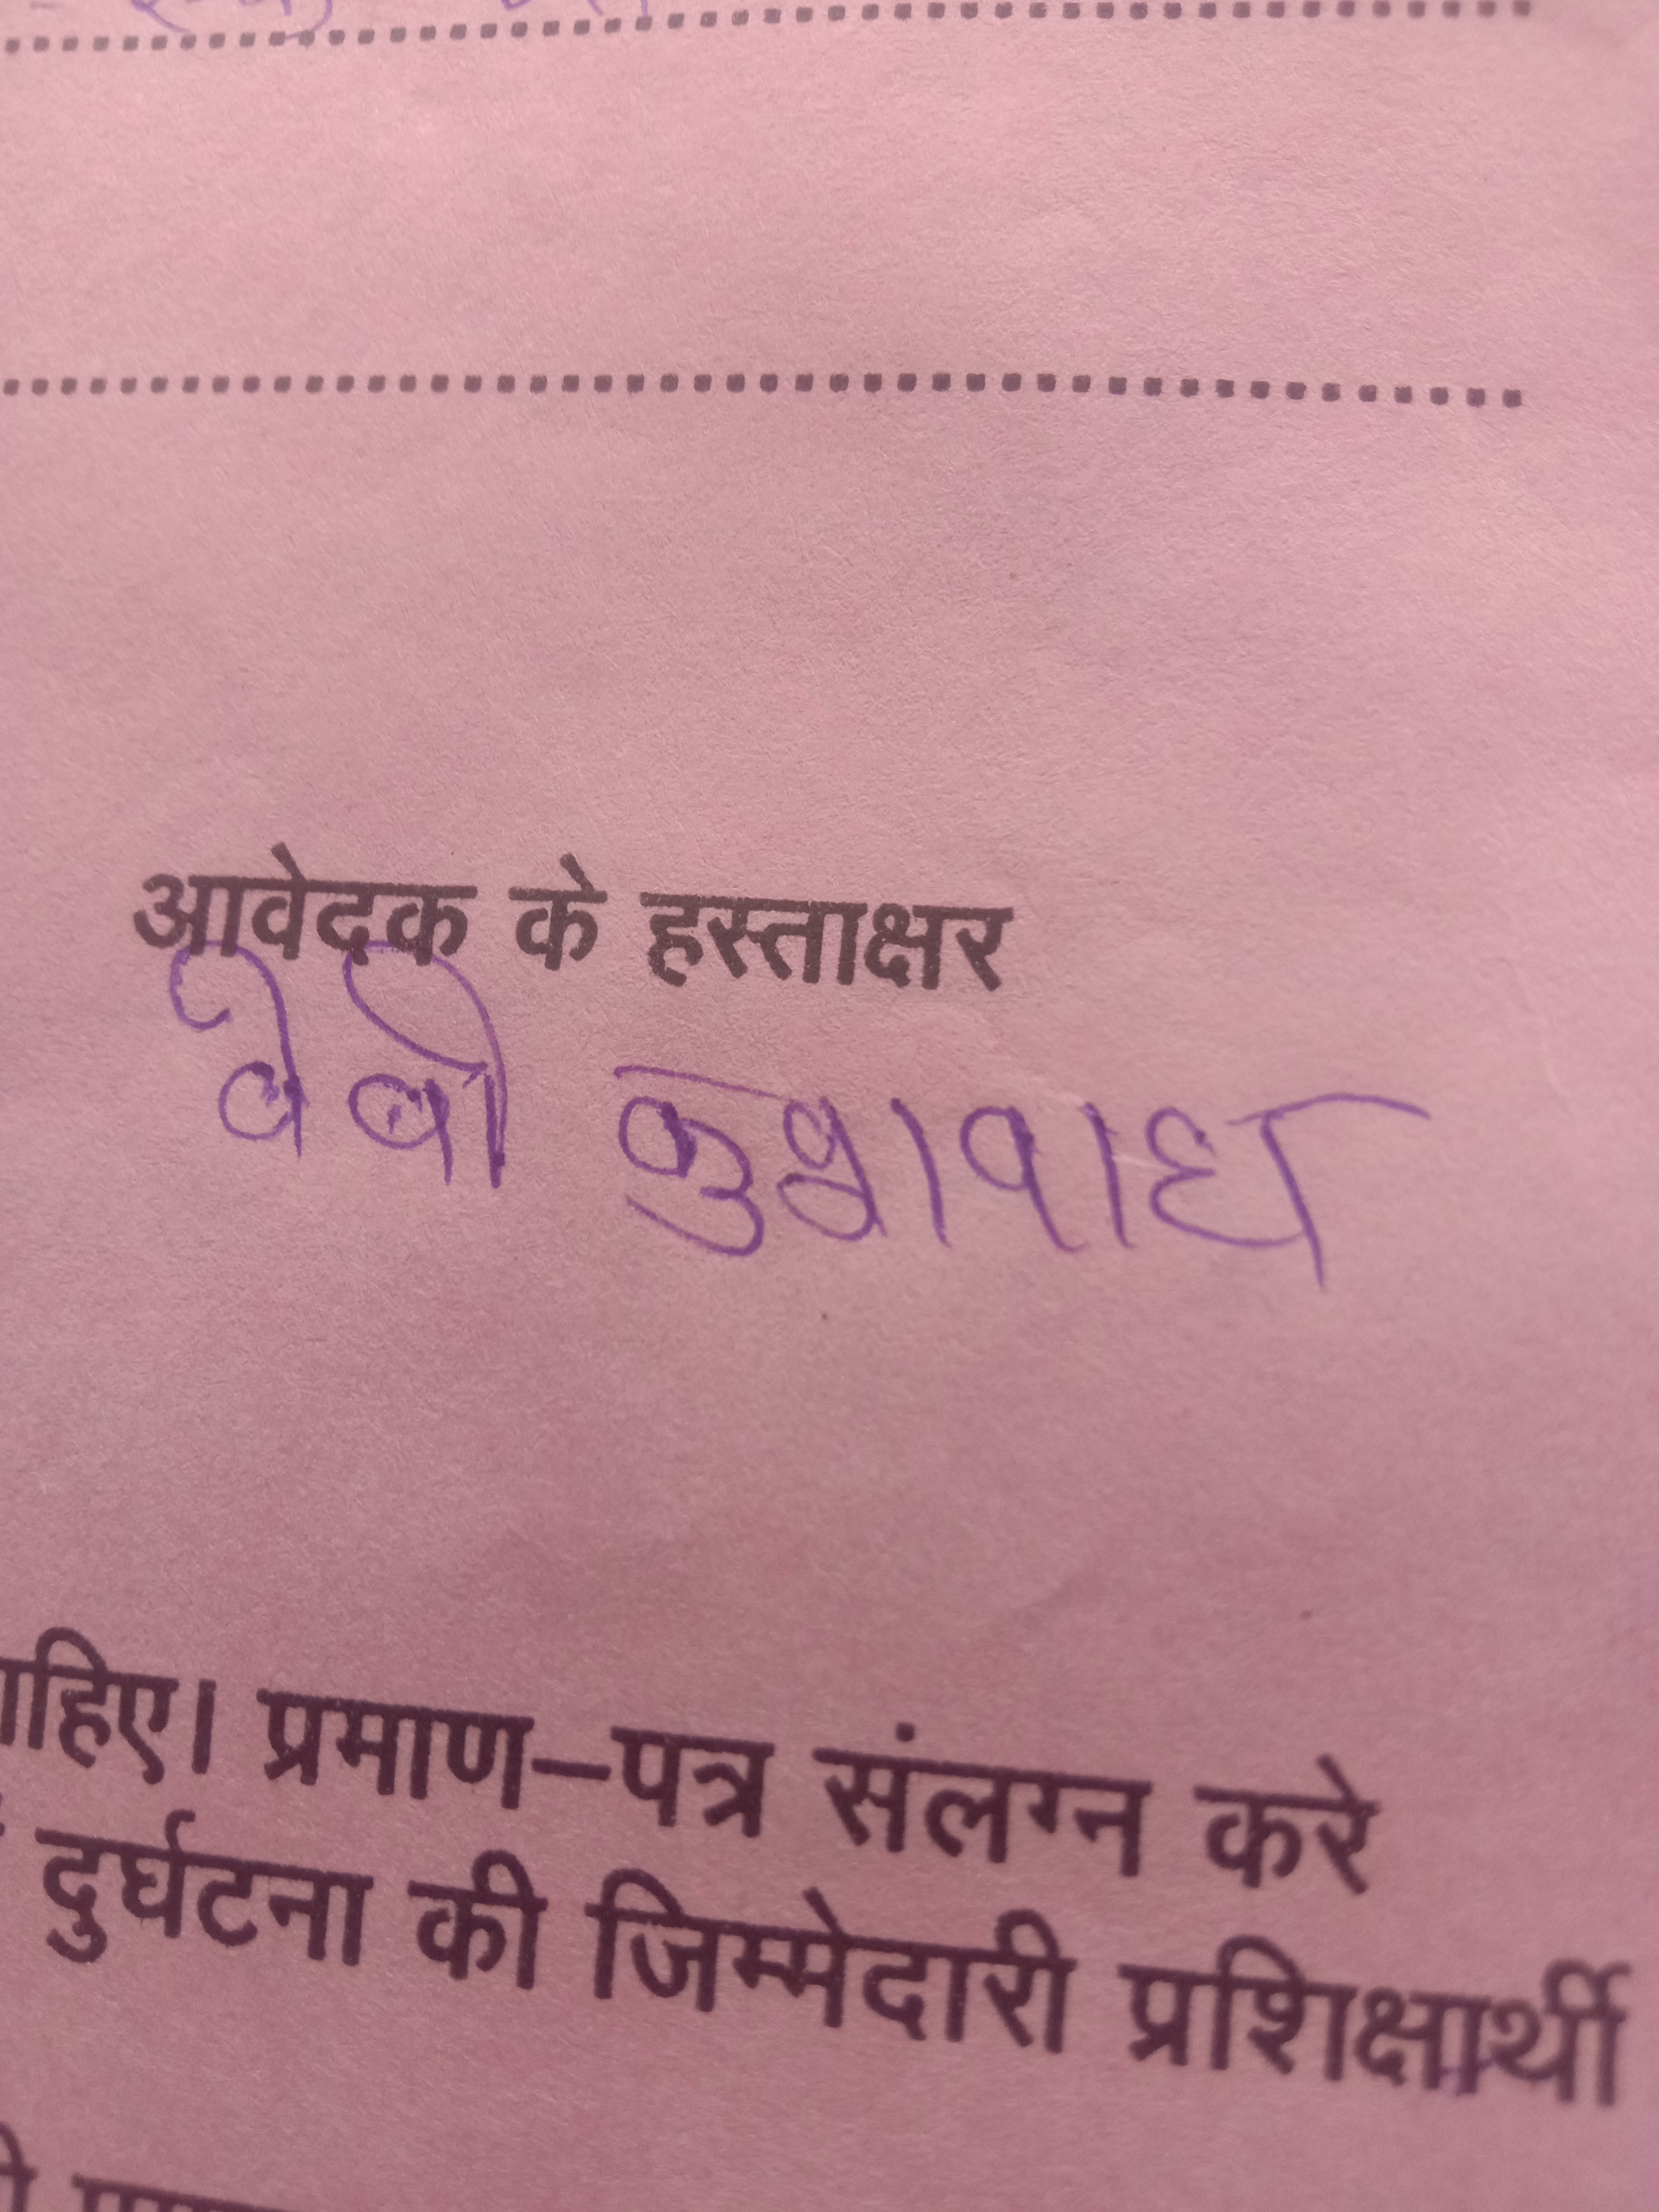 आवेदक के हस्ताक्षर
बेबी कुशवाह
ाहिए। प्रमाण–पत्र संलग्न करे
दुर्घटना की जिम्मेदारी प्रशिक्षार्थी